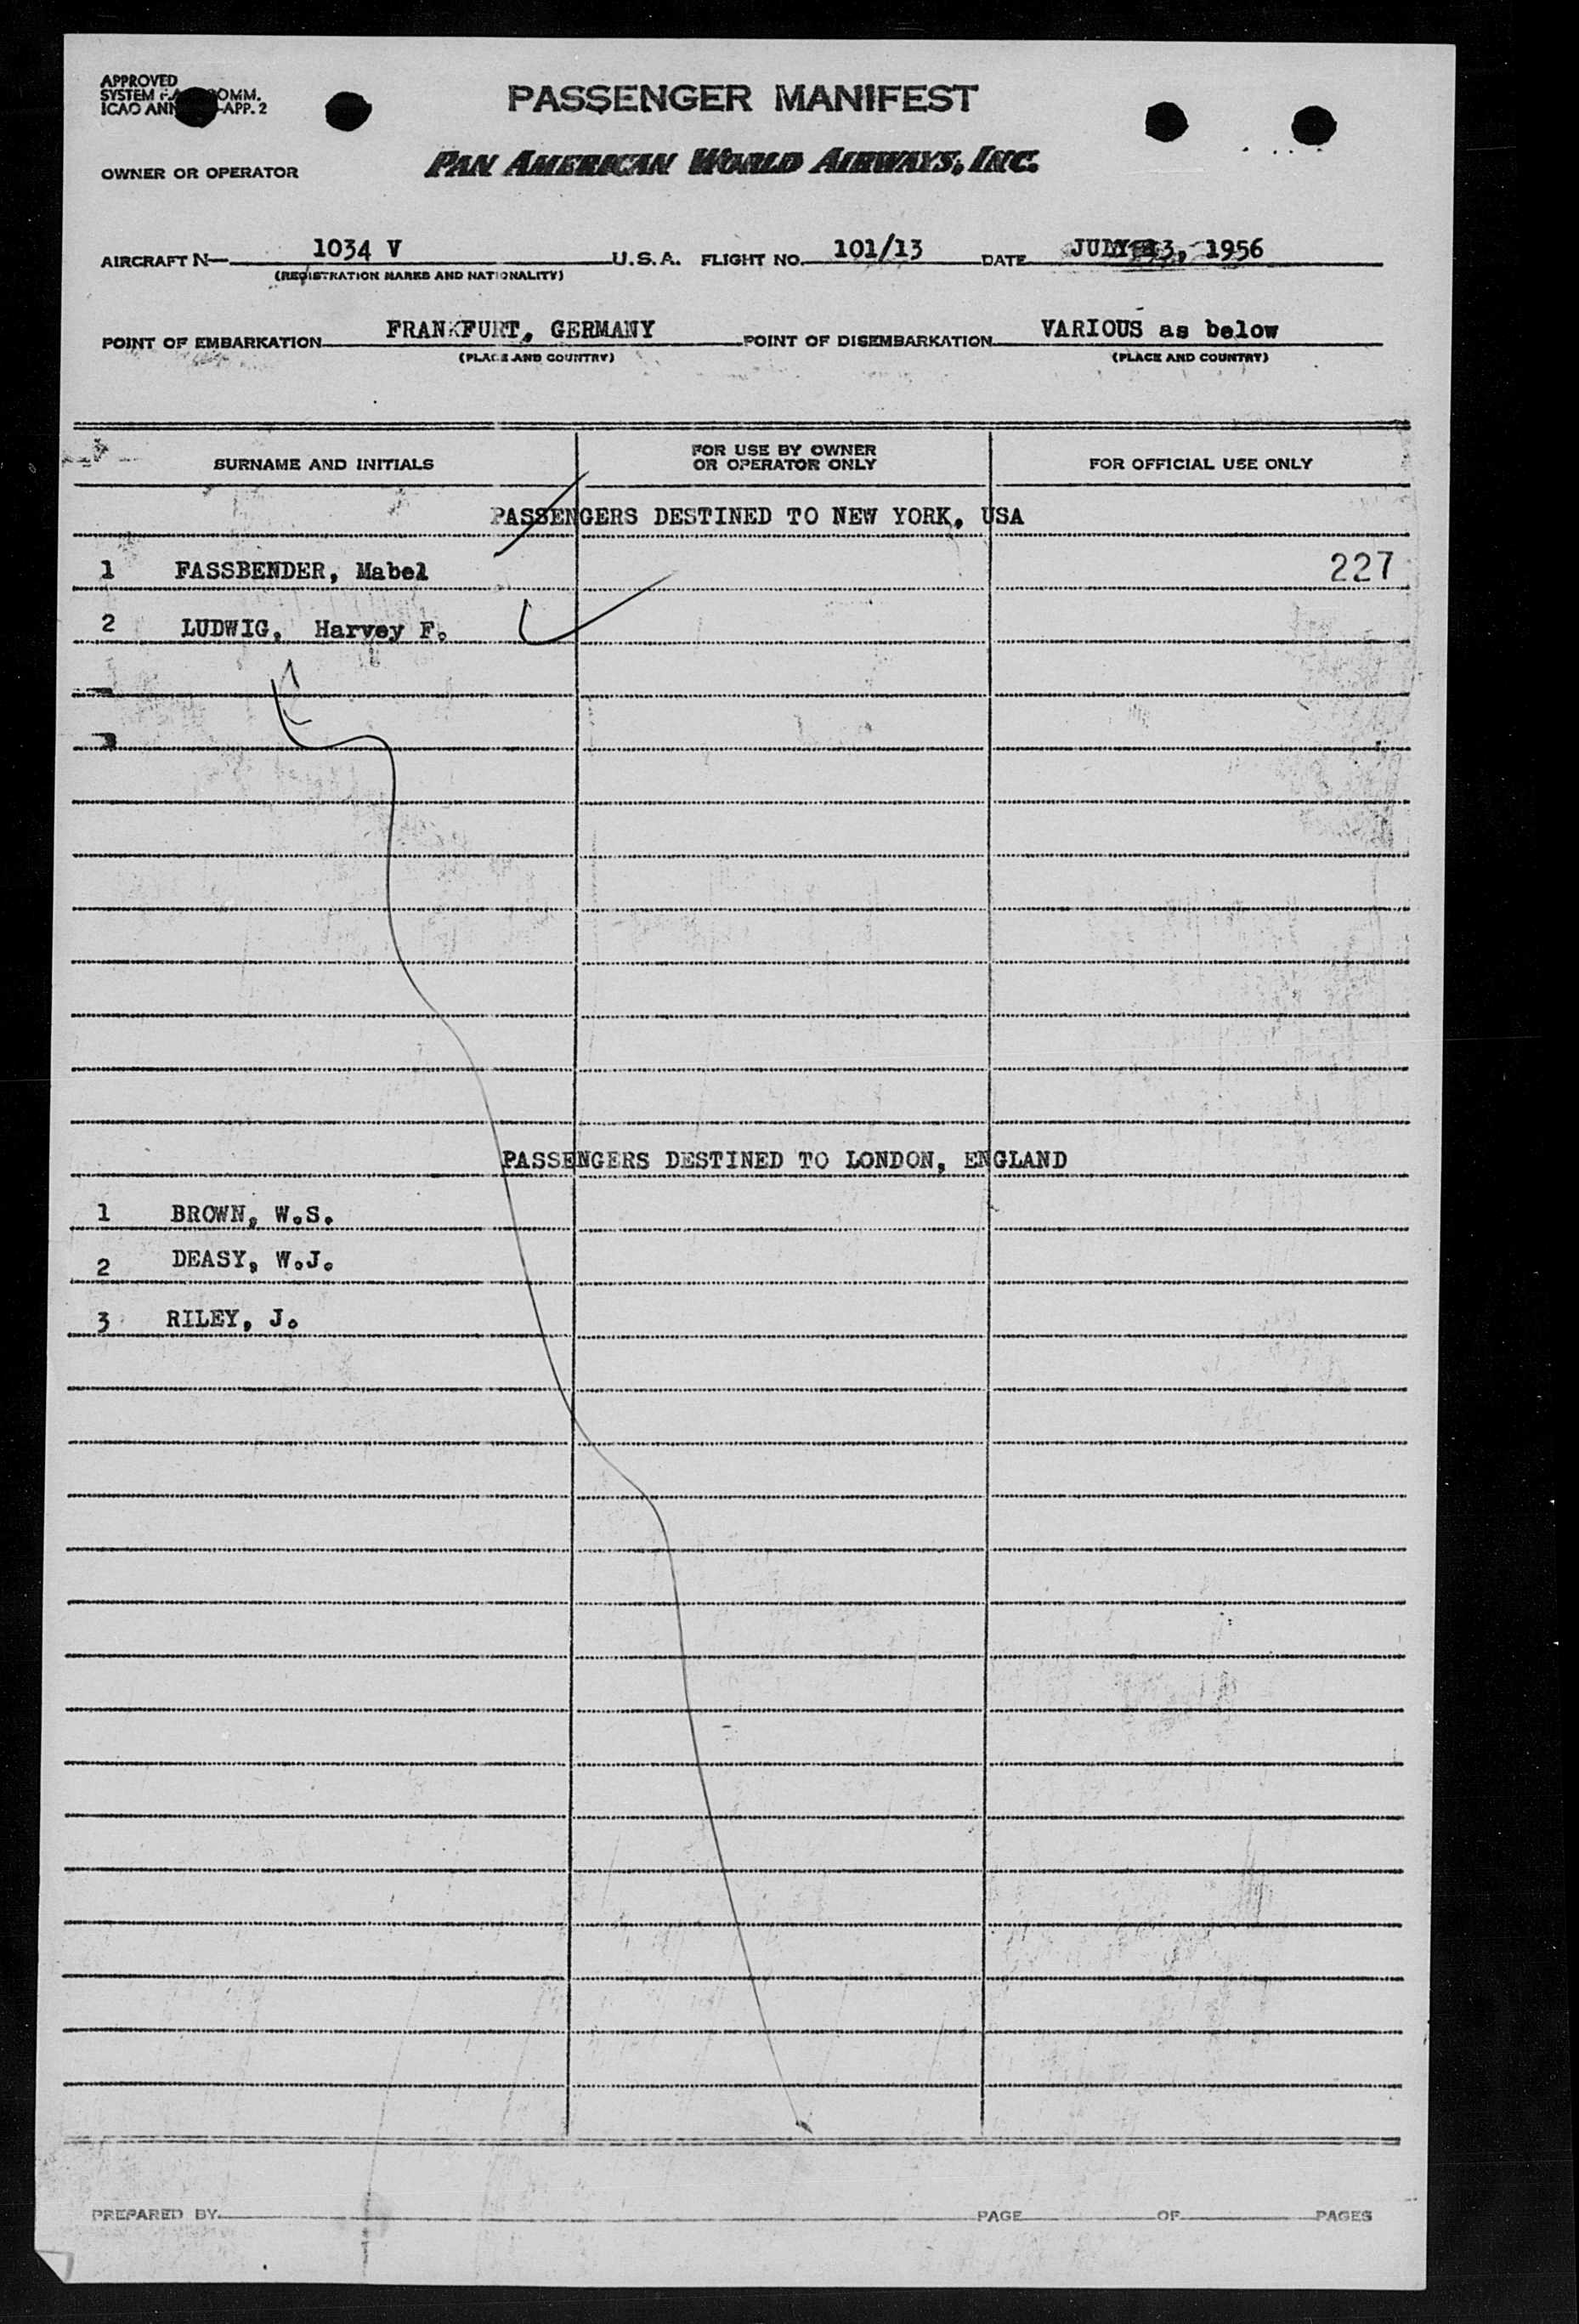 APPROVED
SYSTEM COMM.
ICAO APP. 2
PASSENGER MANIFEST
OWNER OR OPERATOR PAN AMERICAN WORLD AIRWAYS, INC.
AIRCRAFT N— 1034 V U.S.A. FLIGHT NO. 101/13 DATE JULY 13, 1956
(REGISTRATION MARKS AND NATIONALITY)
POINT OF EMBARKATION FRANKFURT, GERMANY POINT OF DISEMBARKATION VARIOUS as below
(PLACE AND COUNTRY) (PLACE AND COUNTRY)
SURNAME AND INITIALS FOR USE BY OWNER OR OPERATOR ONLY FOR OFFICIAL USE ONLY
PASSENGERS DESTINED TO NEW YORK, USA
1 FASSBENDER, Mabel 227
2 LUDWIG, Harvey F.
PASSENGERS DESTINED TO LONDON, ENGLAND
1 BROWN, W.S.
2 DEASY, W.J.
3 RILEY, J.
PREPARED BY PAGE OF PAGES